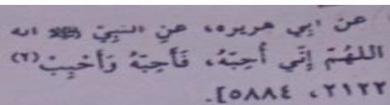 عن أبي هريرة، عنِ النبيّ ﷺ أنه
اللهُمّ إنّي أُحِبّهُ، فَأحِبّهُ وَأَحْبِبْ(٢)
٢١٢٢، ٥٨٨٤].